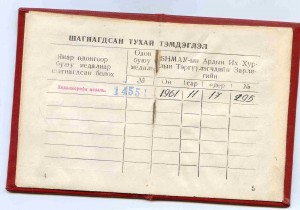 ШАГНАГДСАН ТУХАЙ ТЭМДЭГЛЭЛ
Ямар одонгоор
буюу медалиар
шагнагдсан болох
Одон
буюу
медаль
№
БНМАУ-ын Ардын Их Хур-
лын Тэргүүлэгчдийн Зарлигийн
Он
сар
өдөр
№
1455
1961
11
17
295
4
5